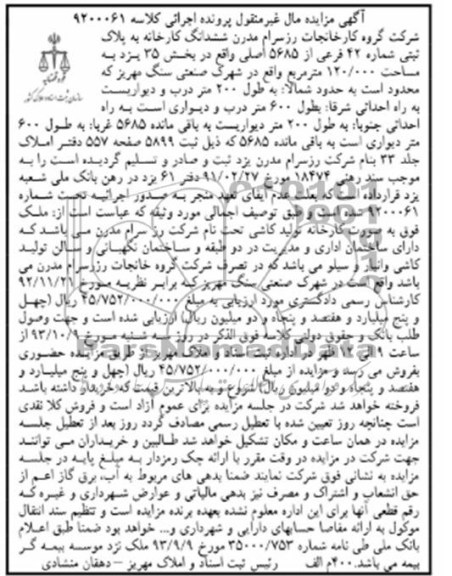 آگهی مزایده مال غیرمنقول پرونده اجرائی کلاسه ۹۲۰۰۰۶۱
شرکت گروه کارخانجات رزسرام مدرن ششدانگ کارخانه به پلاک
ثبتی شماره ۴۲ فرعی از ۵۶۸۵ اصلی واقع در بخش ۳۵ یزد به
مساحت ۱۲۰/۰۰۰ مترمربع واقع در شهرک صنعتی سنگ مهریز که
محدود است به حدود شمالا: به طول ۲۰۰ متر درب و دیواریست
به راه احداثی شرقا: بطول ۶۰۰ متر درب و دیواری است به راه
احداثی جنوبا: به طول ۲۰۰ متر دیواریست به باقی مانده ۵۶۸۵ غربا: به طول ۶۰۰
متر دیواری است به باقی مانده ۵۶۸۵ که ذیل ثبت ۵۸۹۹ صفحه ۵۵۷ دفتر املاک
جلد ۳۳ بنام شرکت رزسرام مدرن یزد ثبت و صادر و تسلیم گردیده است را به
موجب سند رهنی ۱۸۴۷۴ مورخ ۹۱/۰۲/۲۷ دفتر ۶۱ یزد در رهن بانک ملی شعبه
یزد قرارداده است که بعلت عدم ایفای تعهد منجر به صدور اجرائیه تحت شماره
۹۲۰۰۰۶۱ شده است و طبق توصیف اجمالی مورد وثیقه که عبارت است از: ملک
فوق به صورت کارخانه تولید کاشی تحت نام شرکت رز سرام مدرن می باشد که
دارای ساختمان اداری و مدیریت در دو طبقه و ساختمان نگهبانی و سالن تولید
کاشی وانبار و سیلو می باشد که در تصرف شرکت گروه خانجات رزسرام مدرن می
باشد واقع است در شهرک صنعتی سنگ مهریز که برابر نظریه مورخ ۹۲/۱۱/۲۱
کارشناس رسمی دادگستری مورد ارزیابی به مبلغ ۴۵/۷۵۲/۰۰۰/۰۰۰ ریال (چهل
و پنج میلیارد و هفتصد و پنجاه و دو میلیون ریال) ارزیابی شده است و جهت وصول
طلب بانک و حقوق دولتی کلاسه فوق الذکر در روز سه شنبه مورخ ۹۳/۱۰/۹ از
ساعت ۹ الی ۱۲ ظهر در اداره ثبت اسناد و املاک مهریز از طریق مزایده حضوری
بفروش می رسد و مزایده از مبلغ ۴۵/۷۵۲/۰۰۰/۰۰۰ ریال (چهل و پنج میلیارد و
هفتصد و پنجاه و دو میلیون ریال) شروع و به بالاترین قیمت که خریدار داشته باشد
فروخته خواهد شد شرکت در جلسه مزایده برای عموم آزاد است و فروش کلا نقدی
است چنانچه روز تعیین شده با تعطیل رسمی مصادف گردد روز بعد از تعطیل جلسه
مزایده در همان ساعت و مکان تشکیل خواهد شد طالبین و خریداران می توانند
جهت شرکت در مزایده در وقت مقرر با ارائه چک رمزدار به مبلغ پایه در جلسه
مزایده به نشانی فوق شرکت نمایند ضمنا بدهی های مربوط به آب، برق گاز اعم از
حق انشعاب و اشتراک و مصرف نیز بدهی مالیاتی و عوارض شهرداری و غیره که
رقم قطعی آنها برای این اداره معلوم نشده بعهده برنده مزایده است و تنظیم سند انتقال
موکول به ارائه مفاصا حسابهای دارایی و شهرداری و... خواهد بود ضمنا طبق اعلام
بانک ملی طی نامه شماره ۳۵۰۰۰/۷۵۳ مورخ ۹۳/۹/۹ ملک نزد موسسه بیمه گر
بیمه می باشد. ۴۰۰م الف رئیس ثبت اسناد و املاک مهریز – دهقان منشادی